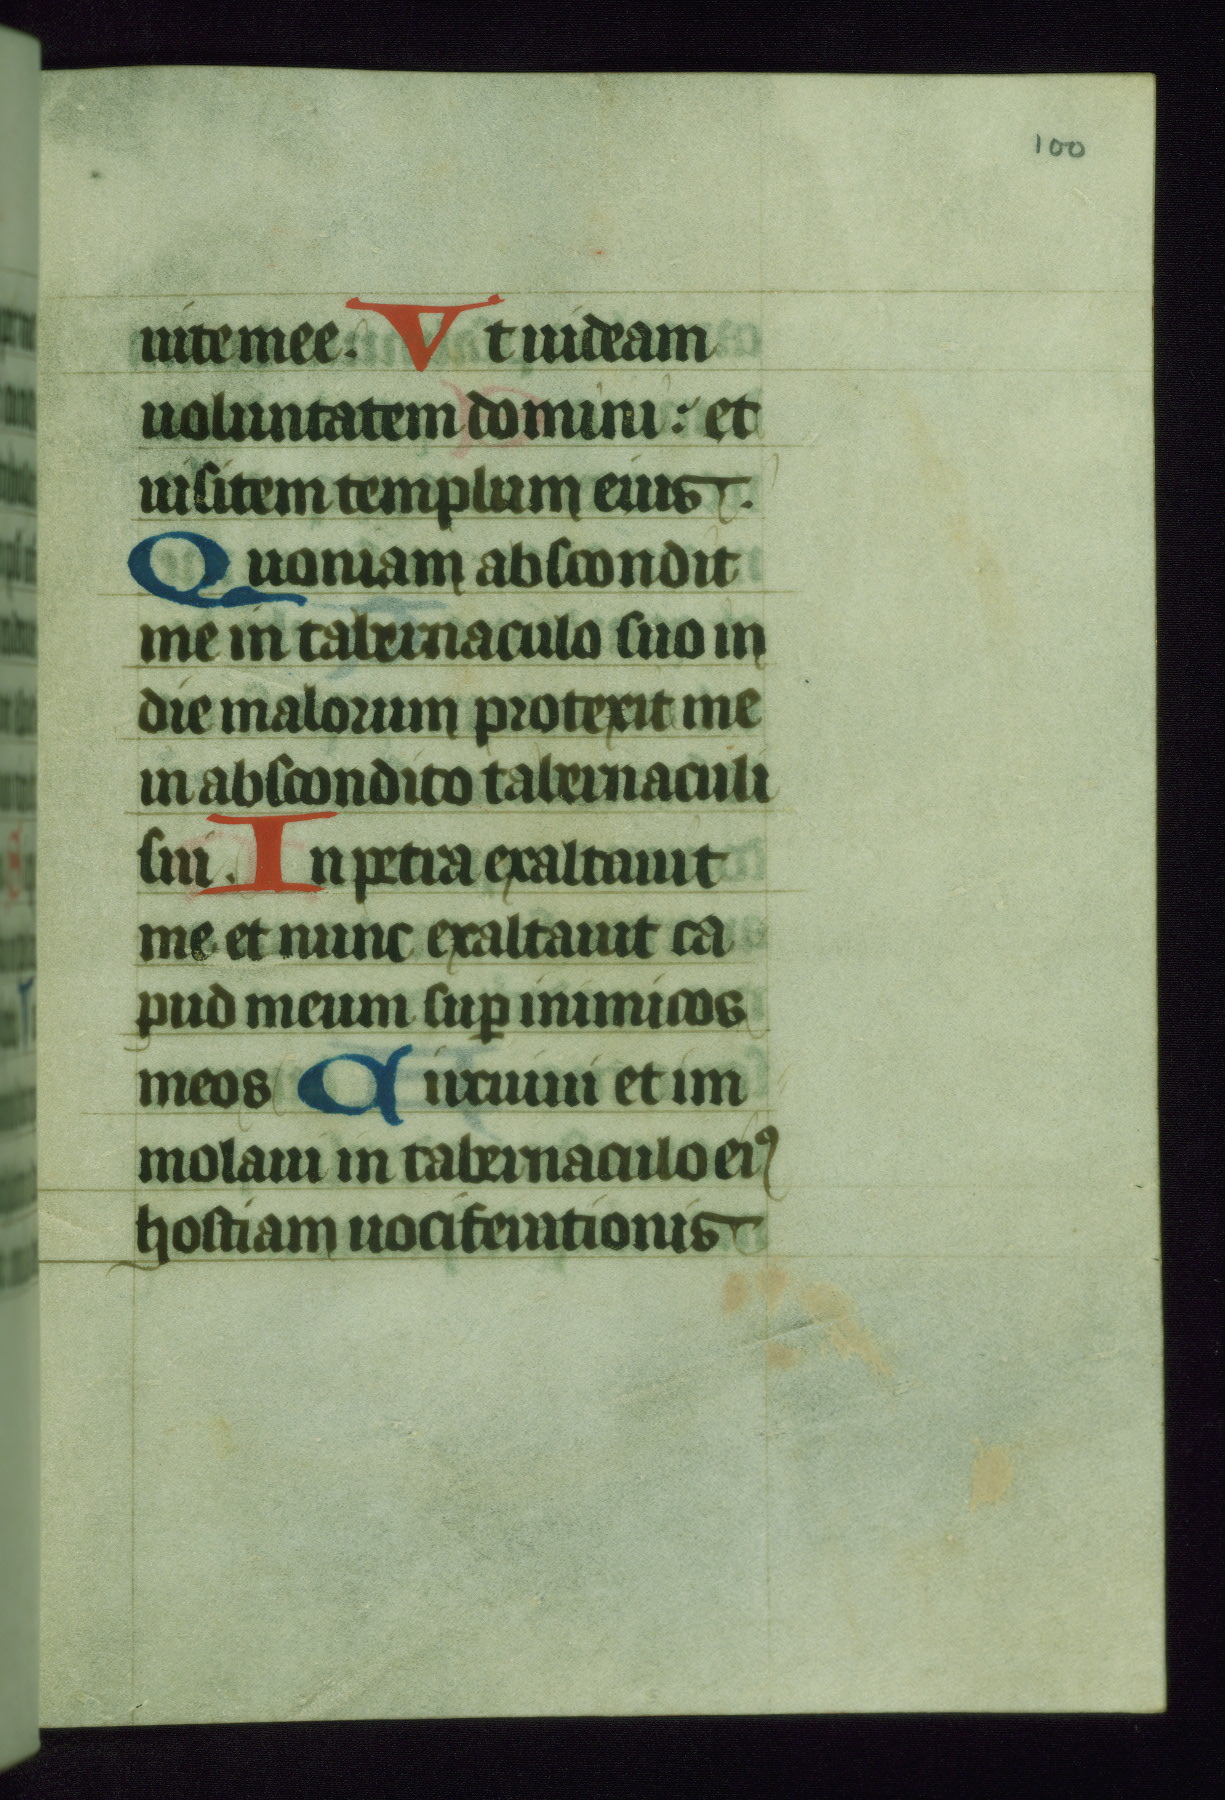 100
uite mee. Vt uideam
uoluntatem domini: et
uisitem templum eius.
Quoniam abscondit
me in tabernaculo suo in
die malorum protexit me
in abscondito tabernaculi
sui. In petra exaltauit
me et nunc exaltauit ca
pud meum sup inimicos
meos Circuiui et im
molaui in tabernaculo eiꝰ
hostiam uociferationis